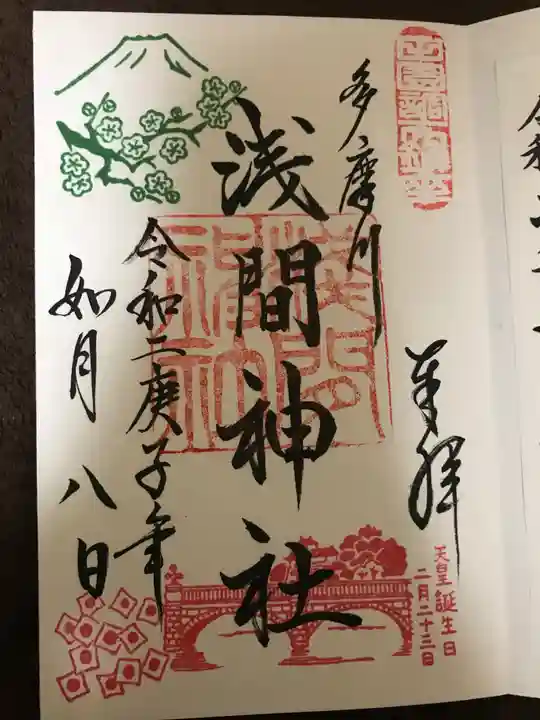 奉拝
多摩川
浅間神社
淺間神社
令和二庚子年
如月八日
天皇誕生日
二月二十三日